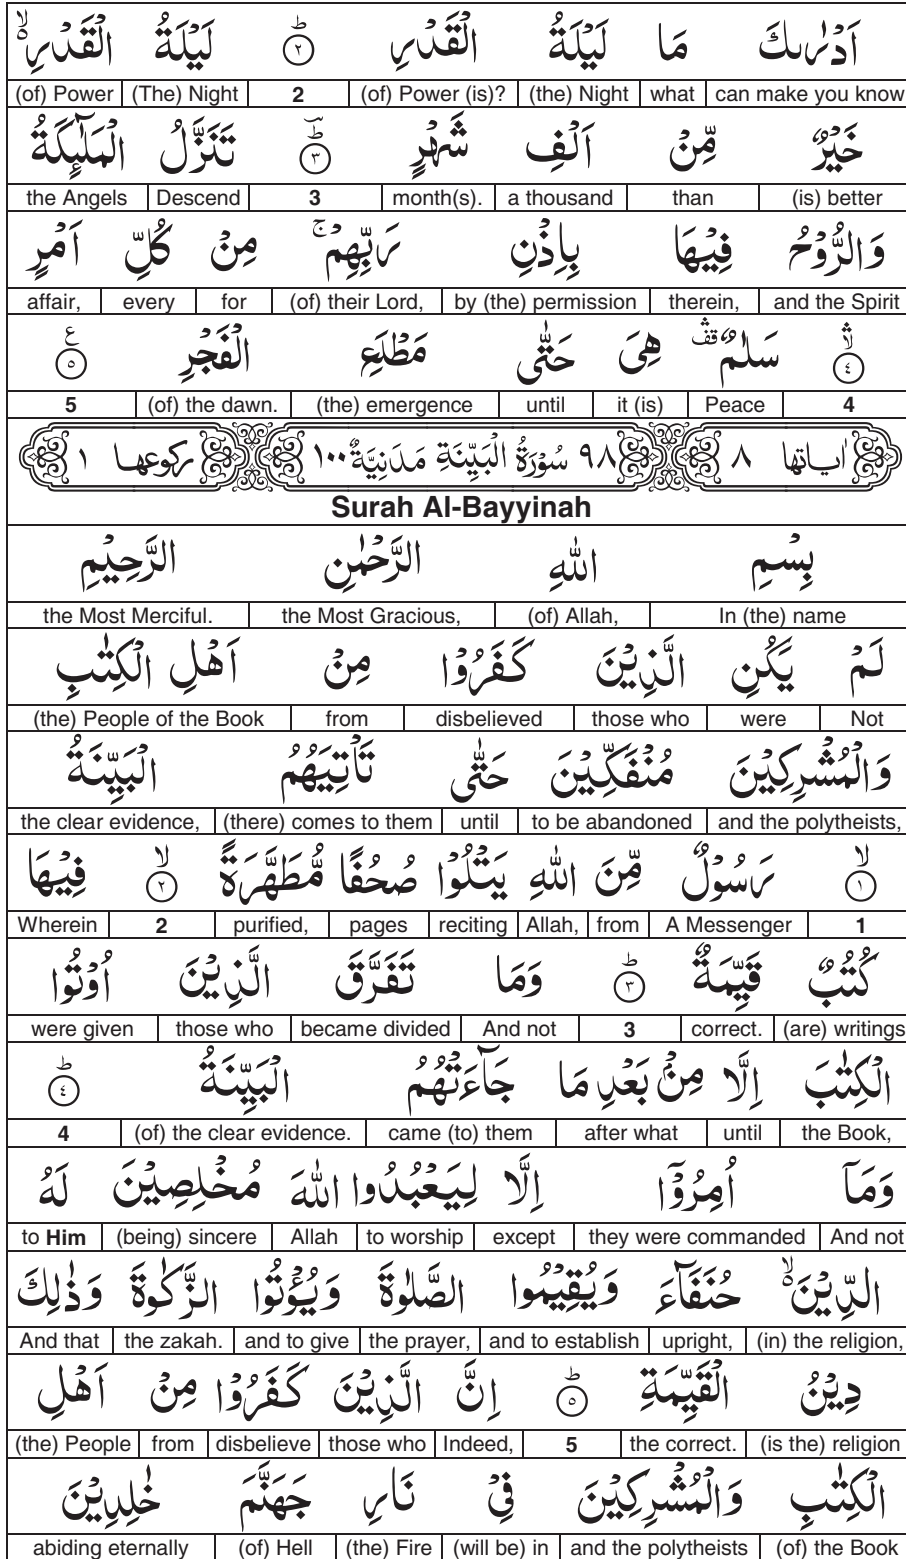 اَدْرٰىكَ مَا لَيْلَةُ الْقَدْرِ ؕ﴿٢﴾ لَيْلَةُ الْقَدْرِ ۙ۬
can make you know what (the) Night (of) Power (is)? 2 (The) Night (of) Power
خَيْرٌ مِّنْ اَلْفِ شَهْرٍ ؕؔ﴿٣﴾ تَنَزَّلُ الْمَلٰٓئِكَةُ
(is) better than a thousand month(s). 3 Descend the Angels
وَالرُّوْحُ فِيْهَا بِاِذْنِ رَبِّهِمْ ۚ مِنْ كُلِّ اَمْرٍ
and the Spirit therein, by (the) permission (of) their Lord, for every affair,
ۙۛ﴿٤﴾ سَلٰمٌ ۛ۟ قف هِيَ حَتّٰى مَطْلَعِ الْفَجْرِ ﴿٥﴾ ع
4 Peace it (is) until (the) emergence (of) the dawn. 5
اٰياتها ٨ ٩٨ سُوْرَةُ الْبَيِّنَةِ مَدَنِيَّةٌ ١٠٠ ركوعها ١
Surah Al-Bayyinah
بِسْمِ اللّٰهِ الرَّحْمٰنِ الرَّحِيْمِ
In (the) name (of) Allah, the Most Gracious, the Most Merciful.
لَمْ يَكُنِ الَّذِيْنَ كَفَرُوْا مِنْ اَهْلِ الْكِتٰبِ
Not were those who disbelieved from (the) People of the Book
وَالْمُشْرِكِيْنَ مُنْفَكِّيْنَ حَتّٰى تَاْتِيَهُمُ الْبَيِّنَةُ
and the polytheists, to be abandoned until (there) comes to them the clear evidence,
ۙ﴿١﴾ رَسُوْلٌ مِّنَ اللّٰهِ يَتْلُوْا صُحُفًا مُّطَهَّرَةً ۙ﴿٢﴾ فِيْهَا
1 A Messenger from Allah, reciting pages purified, 2 Wherein
كُتُبٌ قَيِّمَةٌ ؕ﴿٣﴾ وَمَا تَفَرَّقَ الَّذِيْنَ اُوْتُوا
(are) writings correct. 3 And not became divided those who were given
الْكِتٰبَ اِلَّا مِنْۢ بَعْدِ مَا جَآءَتْهُمُ الْبَيِّنَةُ ؕ﴿٤﴾
the Book, until after what came (to) them (of) the clear evidence. 4
وَمَاۤ اُمِرُوْۤا اِلَّا لِيَعْبُدُوا اللّٰهَ مُخْلِصِيْنَ لَهُ
And not they were commanded except to worship Allah (being) sincere to Him
الدِّيْنَ ۙ۬ حُنَفَآءَ وَيُقِيْمُوا الصَّلٰوةَ وَيُؤْتُوا الزَّكٰوةَ وَذٰلِكَ
(in) the religion, upright, and to establish the prayer, and to give the zakah. And that
دِيْنُ الْقَيِّمَةِ ؕ﴿٥﴾ اِنَّ الَّذِيْنَ كَفَرُوْا مِنْ اَهْلِ
(is the) religion the correct. 5 Indeed, those who disbelieve from (the) People
الْكِتٰبِ وَالْمُشْرِكِيْنَ فِيْ نَارِ جَهَنَّمَ خٰلِدِيْنَ
(of) the Book and the polytheists (will be) in (the) Fire (of) Hell abiding eternally